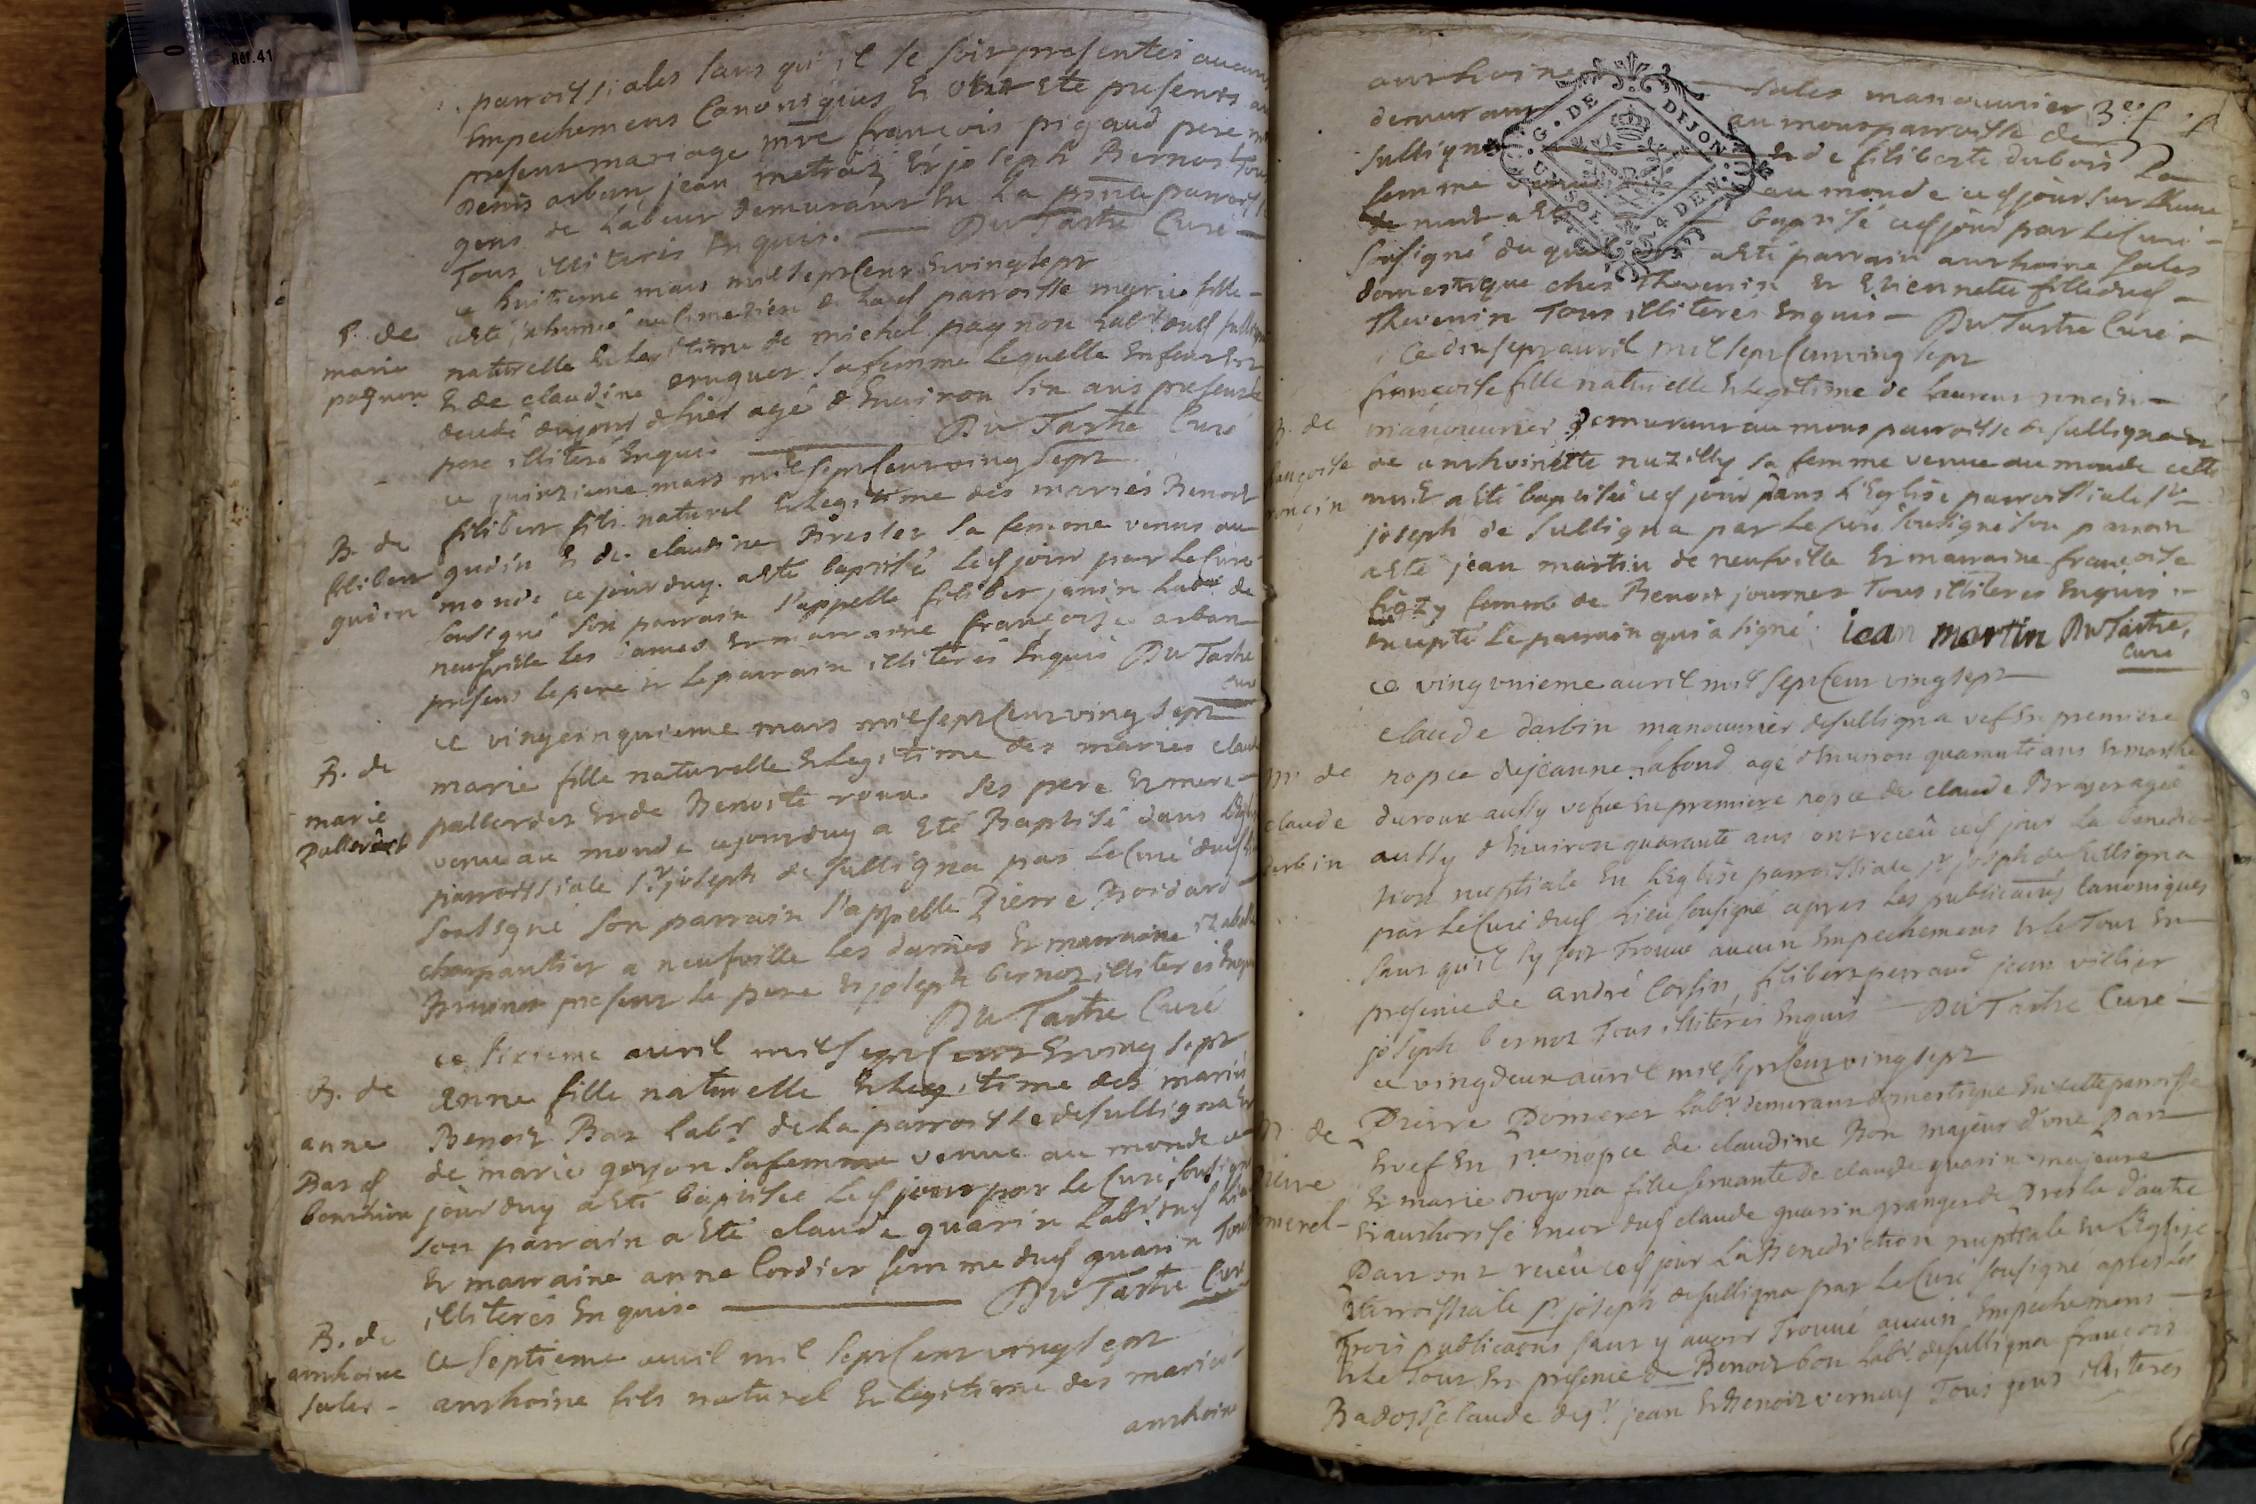 Réf. 41
0
parroissiales sans qu'il se soit presentés aucuns
Empechemens Canoniques Et ont Eté presents au
present mariage mre françois pigaud pere
Denis arban jean metraz Et joseph Bernost Tous
gens de Labeur demurant En La pnte parroisse
Tous illiteris Enquis. Du Tartre Curé
ce huitieme mars mil sept Cent Et vingt sept
S. de
marie
pagnon
a Eté inhumée au Cimetiere de Lad parroisse marie fille
naturelle Et Legitime de michel pagnon Labr dud sulligna
Et de claudine sa femme Laquelle Enfant Est
decedé du jour d'hier agé d'Environ six ans present Le
pere illiteré Enquis Du Tartre Curé
ce quinzieme mars mil sept Cent vingt sept
B. de
filibert
gudin
filibert fils naturel Et Legitime des mariés Benoit
gudin Et de claudine Bresler sa femme venus au
monde ce jourduy a Eté baptisé Led jour par Le Curé
sousigné son parrain s'appelle filibert janin Labr de
neufville les dames Et marraine françoise arban
presens le pere Et Le parrain illiterés Enquis Du Tartre
Curé
ce vingt cinquieme mars mil sept Cent vingt sept
B. de
marie
palleret
marie fille naturelle Et Legitime des mariés claude
palleret Et de Benoite roux ses pere Et mere
venue au monde ce jourduy a Eté Baptisé dans L'Eglise
parroissiale St joseph de sulligna par Le Curé dud lieu
sousigné son parrain s'appelle Pierre Bordard
charpantier a neufville Les dames Et marraine izabelle
Brunet present Le pere Et joseph bernoz illiterés Enquis
Du Tartre Curé
ce sixieme avril mil sept Cent Et vingt sept
B. de
anne
Bar
anne fille naturelle Et Legitime des mariés
Benoit Bar labr de La parroisse de sulligna Et
de marie goyon sa femme venue au monde ce
jourduy a Eté baptisée Led jour par Le Curé sousigné
son parrain a Eté claude guarin Labr dud lieu
Et marraine anne Cordier femme dud guarin Tous
illiterés Enquis. Du Tartre Curé
B. de
anthoine
sales
ce septieme avril mil sept Cent vingt sept
anthoine fils naturel Et Legitime des mariés
anthoine
anthoine sales manouvrier
demurant au mont parroisse de
sulligna Et de filiberte dubois sa
femme venu au monde ced jour sur Lheure
de nuit a Eté baptisé ced jour par Le Curé
sousigné duquel a Eté parrain anthoine sales
domestique chés Thevenin Et Etiennette fille dud
Thevenin Tous illiterés Enquis Du Tartre Curé
G. DE DIJON
UN SOL 4 DEN.
Ce dix sept avril mil sept Cent vingt sept
B. de
françoise
roncin
françoise fille naturelle Et Legitime de Laurent roncin
manouvrier Demurant au mont parroisse de sulligna Et
de anthoinette nuzilly sa femme venue au monde cette
nuit a Eté baptisée ced jour dans L'Eglise parroissiale St
joseph de sulligna par Le Curé sousigné son parrain
a Eté jean martin de neufville Et marraine françoise
femme de Benoit journet Tous illiteres Enquis
Excepté Le parrain qui a signé jean martin Du Tartre
Curé
ce vingt unieme avril mil sept Cent vingt sept
M. de
claude
darbin
claude darbin manouvrier de sulligna vef En premiere
nopce de jeanne lafond agé d'Environ quarante ans Et marthe
duroux aussy vefve En premiere nopce de claude Broyer agée
aussy d'Environ quarante ans ont receu ced jour La benedic
tion nuptiale En L'Eglise parroissiale St joseph de sulligna
par Le Curé dud Lieu sousigné apres Les publicaons Canoniques
sans qu'il sy soit Trouvé aucun Empechemens Et le Tout En
presence de andré Corsin, filibert perraud jean villier
joseph bernoz Tous illiterés Enquis Du Tartre Curé
ce vingt deux avril mil sept Cent vingt sept
M. de
pierre
pomerel
Pierre Pomerel Labr demurant domestique En cette parroisse
Et vef En 1re nopce de claudine Bon majeur d'une part
Et marie fille servante de claude guarin majeure
Et authorisé Encor dud claude guarin granger de Presle d'autre
Part ont receu ced jour La Benediction nuptiale En L'Eglise
Parroissiale St joseph de sulligna par Le Curé sousigné apres Les
Trois publicaons sans y avoir Trouvé aucun Empechemens
Et le Tout En presence de Benoit bon Labr de sulligna françois
jean Et Benoit vernay Tous gens illiteres